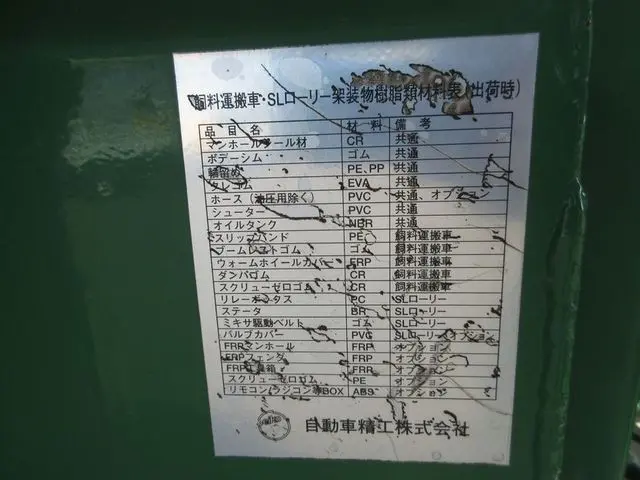 飼料運搬車・SLローリー架装物樹脂類材料表(出荷時)
品目名 材料 備考
マンホールシール材 CR 共通
ボデーシム ゴム 共通
輪留め PE、PP 共通
タレゴム EVA 共通
ホース(油圧用除く) PVC 共通、オプション
シューター PVC 共通
オイルタンク NBR 共通
スリップバンド PE 飼料運搬車
ブームレストゴム ゴム 飼料運搬車
ウォームホイールカバー FRP 飼料運搬車
ダンパゴム CR 飼料運搬車
スクリューゼロゴム CR 飼料運搬車
PC SLローリー
ステータ BR SLローリー
ミキサ駆動ベルト ゴム SLローリー
バルブカバー PVC SLローリー、オプション
FRPマンホール FRP オプション
FRPフェンダ FRP オプション
FRP工具箱 FRP オプション
スクリューゼロゴム PE オプション
リモコン(ラジコン)等BOX ABS オプション
自動車精工株式会社